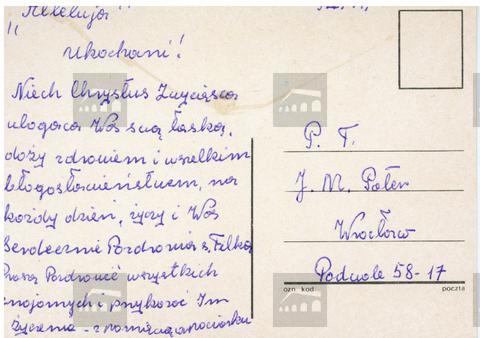 "Alleluja"
Ukochani!
Niech Chrystus Zwycięsca
ubogaca Was swą łaską,
doży zdrowiem i wszelkim
błogosławieństwem, na
każdy dzień, życzy i Was
Serdecznie Pozdrawia s. Falka
Proszę Pozdrowić wszystkich
znajomych i przykazać Im
życzenia - z pamięcią
P. T.
J. M. Poter
Wrocław
Podwale 58-17
ozn kod
poczta